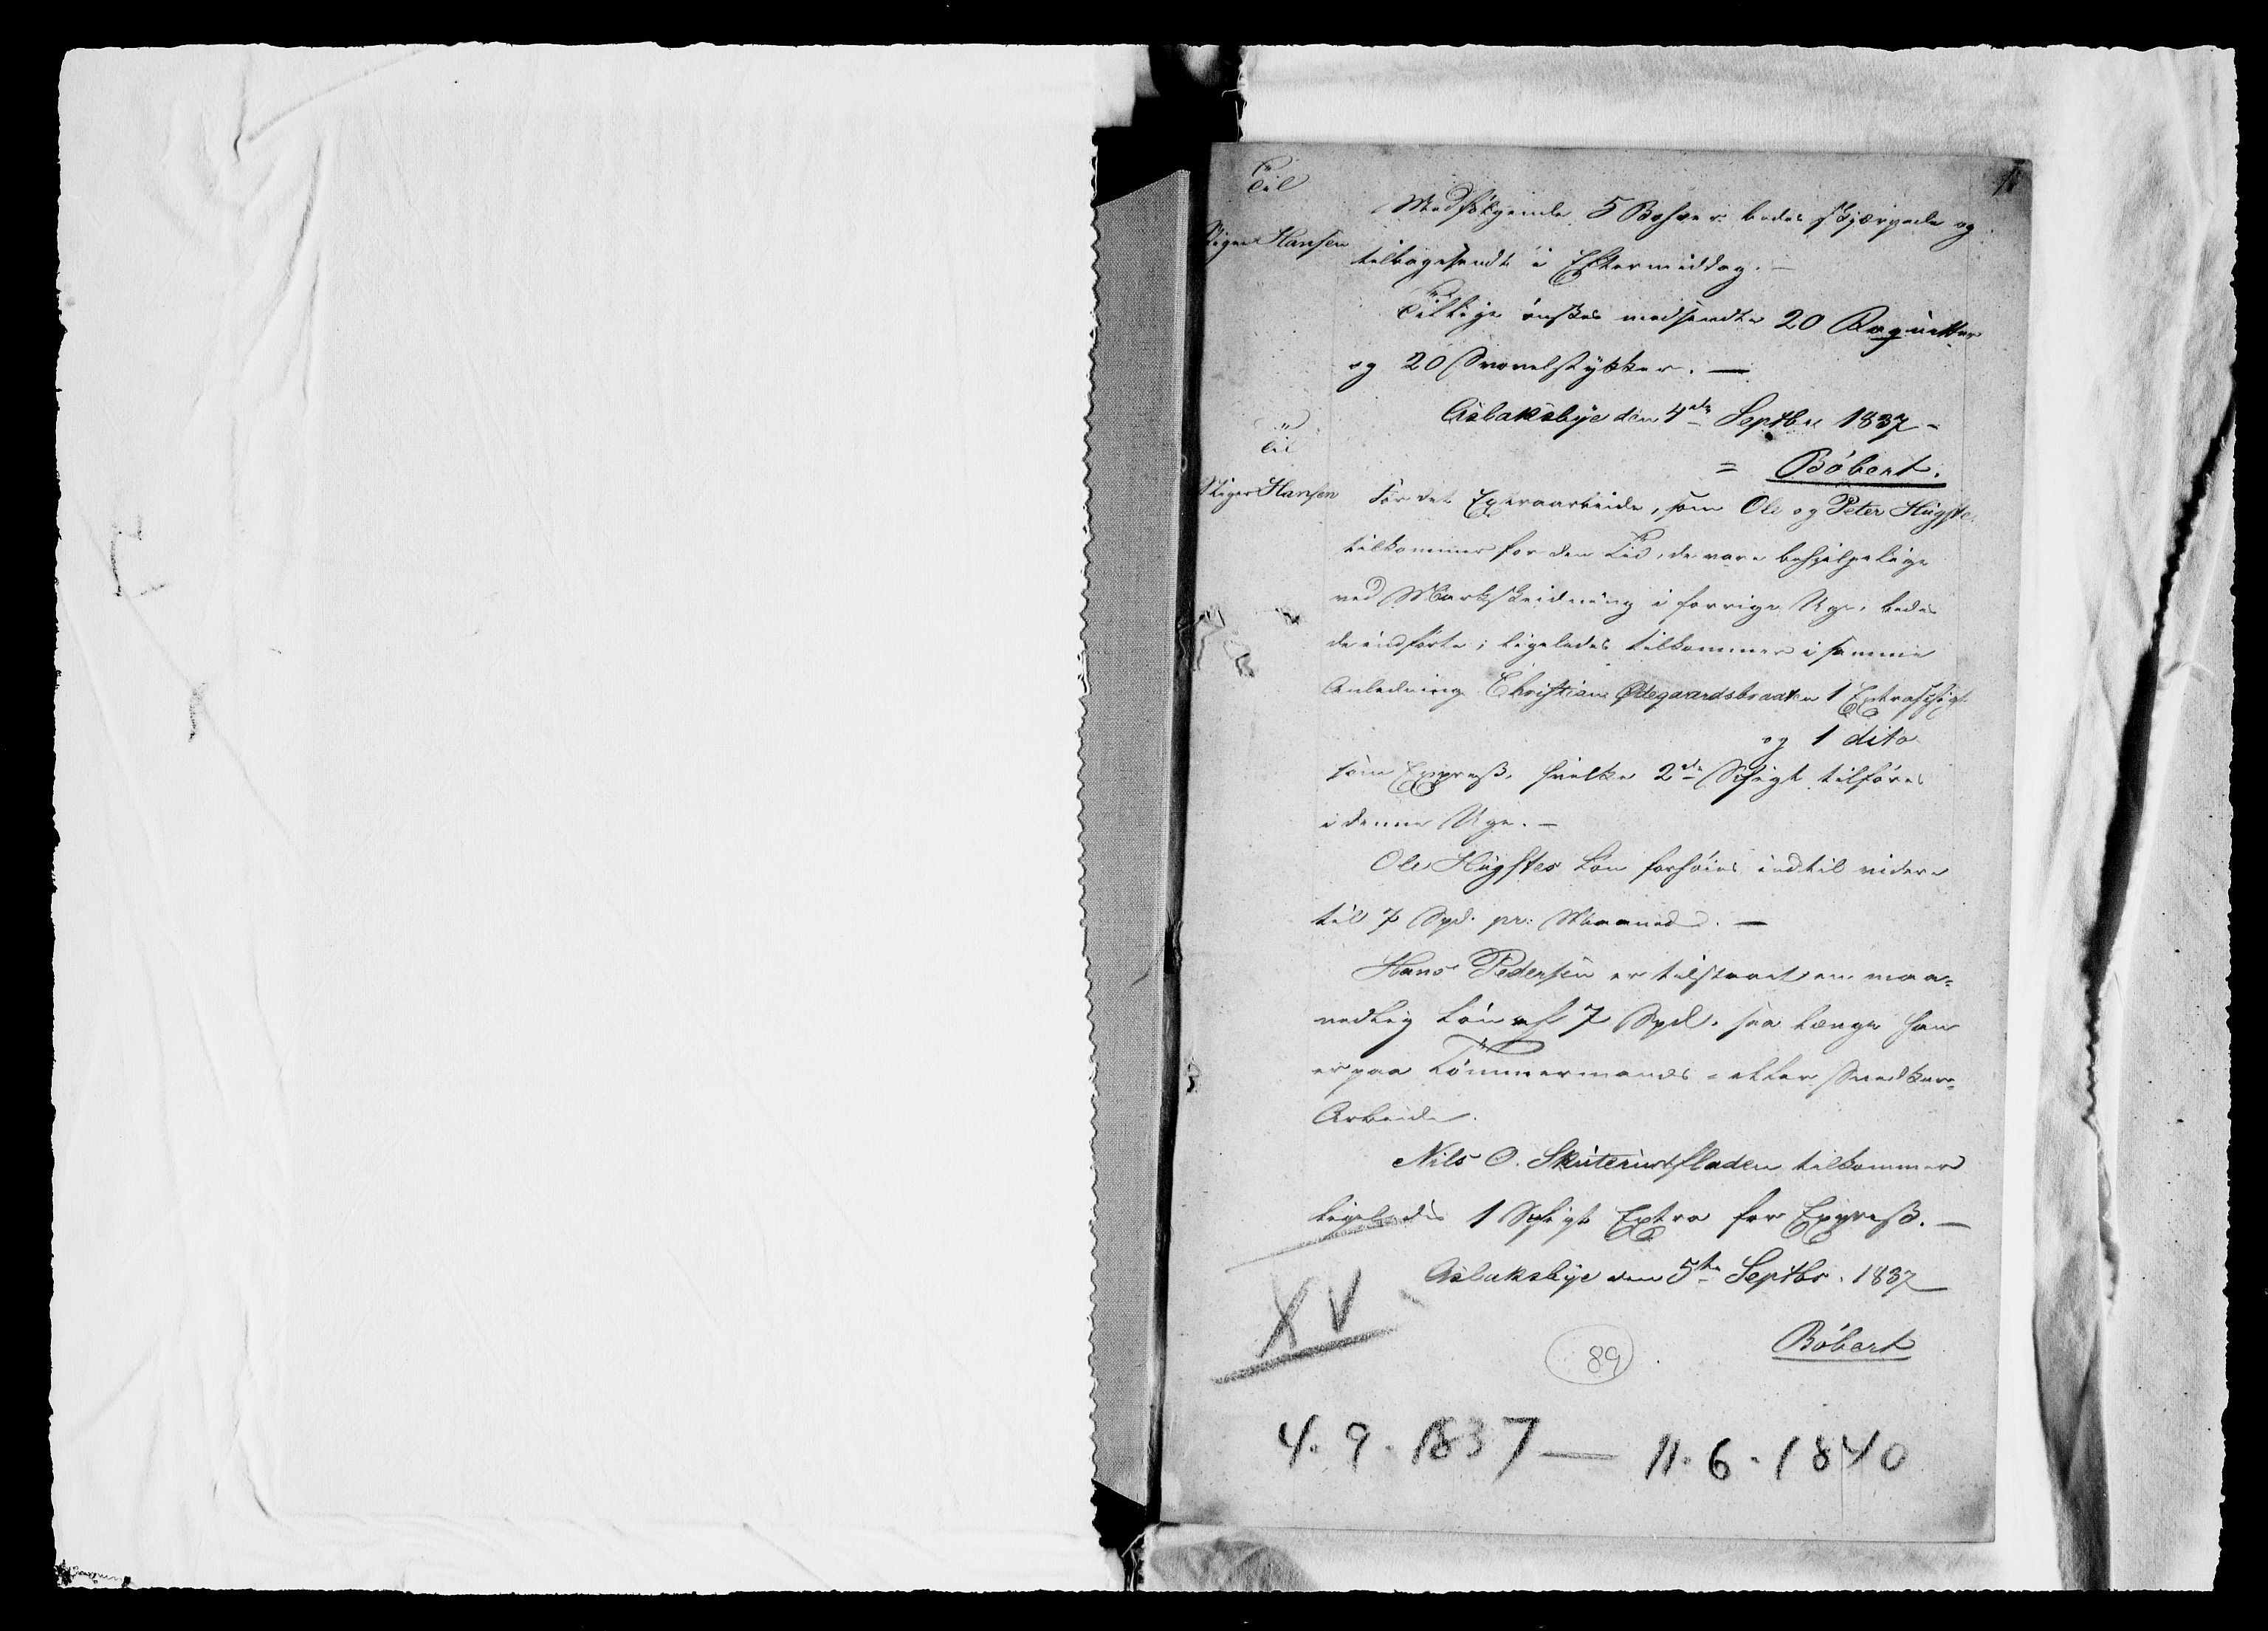 1
Til
Stiger Hansen
Medfølgende 5 Bohre bedes skjærpede og
tilbagesendt i Eftermiddag. —
Tillige ønskes medsendte 20 Raquetter
og 20 Svovelstykker. —
Aslaksbye den 4de Septbr 1837 –
= Böbert.
Til
Stiger Hansen
For det Extraarbeide, som Ole og Peter Hugste
tilkommer for den Tid, de vare behjelpelige
ved Markskeidning i forrige Uge, bedes
de indførte; ligeledes tilkommer i samme
Anledning Christian Ødegaardsbraaten 1 Extraschigt
og 1 dito
som Expreß, hvilke 2de Schigt tilføres
i denne Uge. —
Ole Hugstes Løn forhøies indtil videre
til 7 Spd. pr: Maaned. —
Hans Pedersen er tilstaaet en maa=
nedlig Løn af 7 Spd. saa længe han
er paa Tømmermands= eller Snedker=
Arbeide.
Nils O. Skuterudfladen tilkommer
ligeledes 1 Schigt Extra for Expreß. —
Aslaksbye den 5te Septbr. 1837
Böbert
XV
89
4. 9. 1837 — 11. 6. 1840